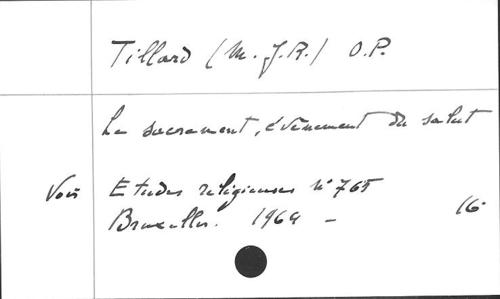 Tillard (M. J.R.) O.P.
Le sacrement, évènement du salut
Voir Etudes religieuses N° 765
Bruxelles. 1964 - 16°